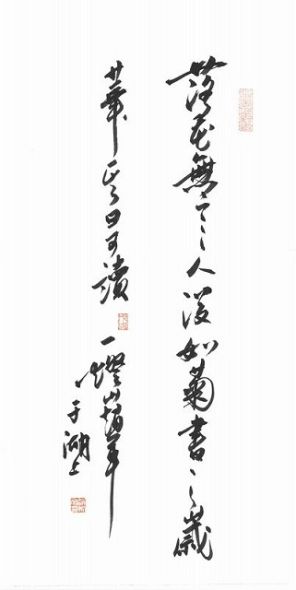 落花無言人淡如菊書之歲
華其曰可讀
一燈
于湖上